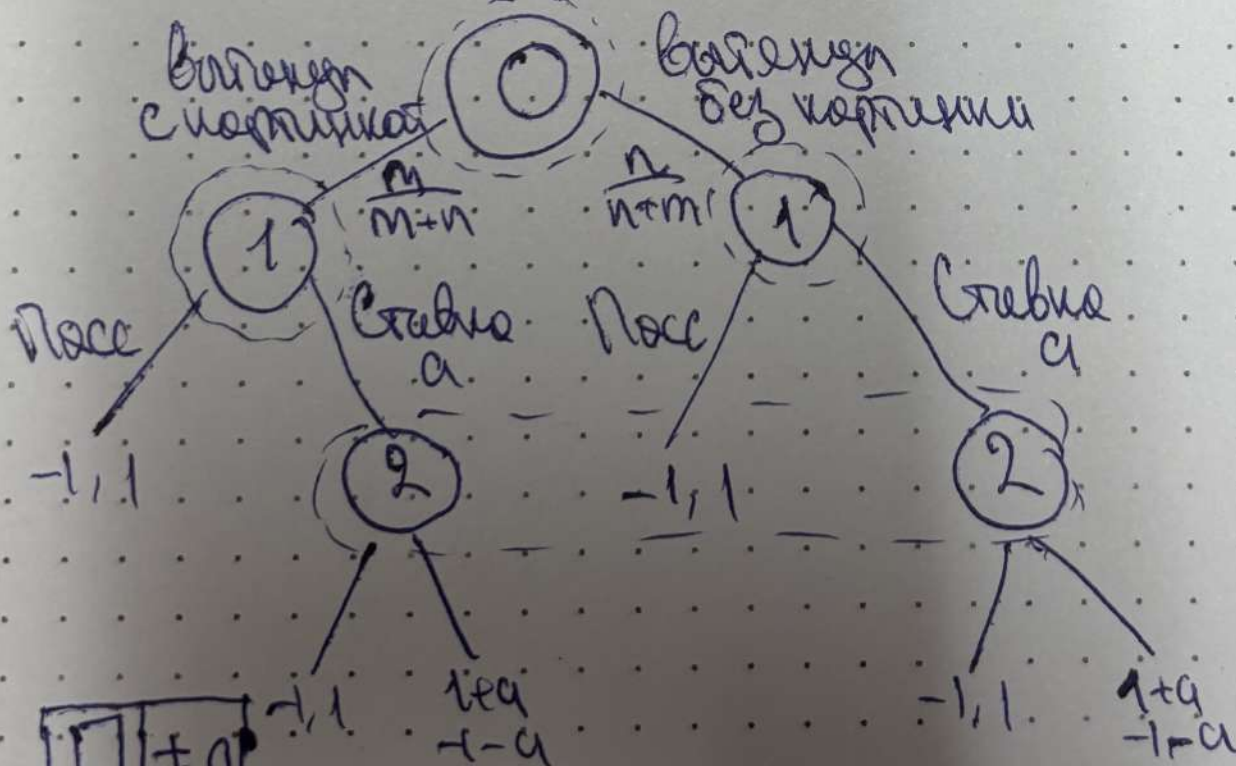 Вытянул
с картинкой
0
Вытянул
без картинки
m/(m+n)
n/(n+m)
1
1
Пасс
Ставка
a
Пасс
Ставка
a
-1, 1
2
-1, 1
2
-1, 1
1+a
-1-a
-1, 1
1+a
-1-a
+a